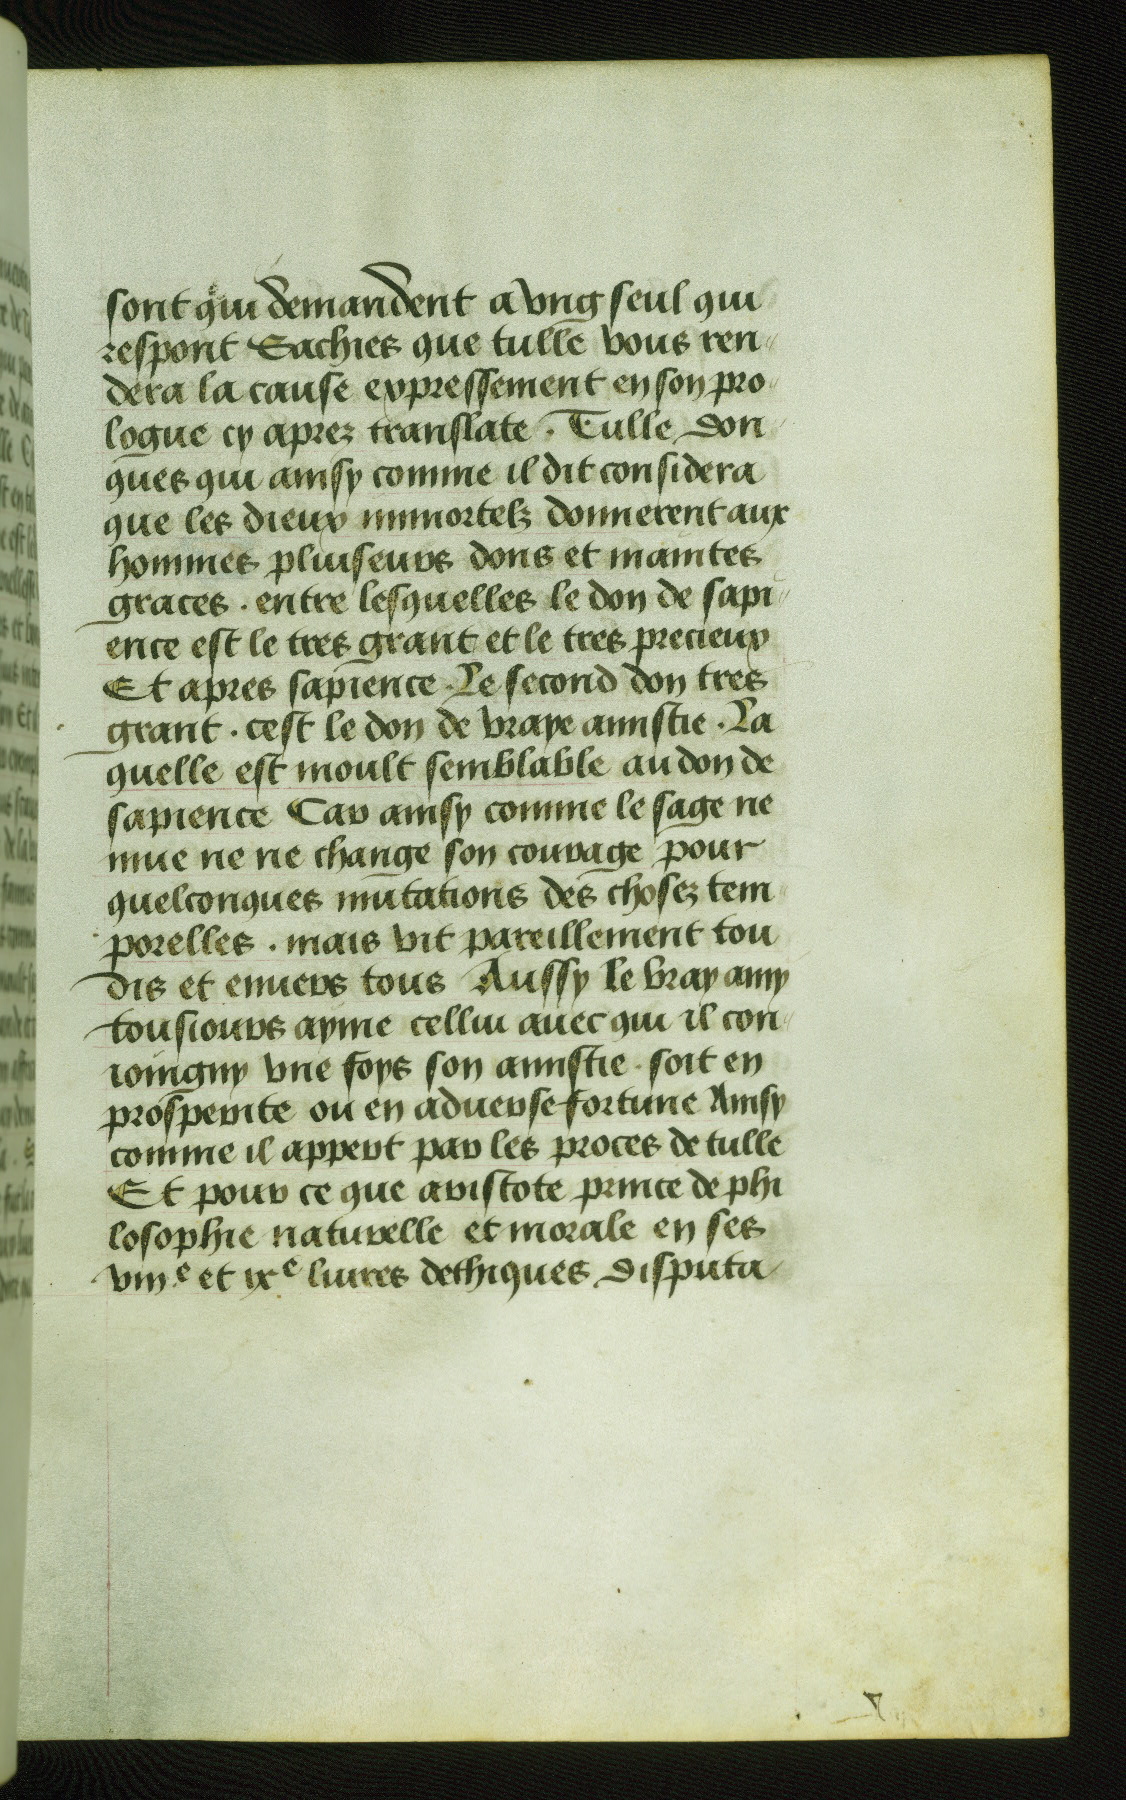 sont qui demandent a vng seul qui
respont Sachies que tulle vous ren
dera la cause expressement en son pro
logue cy aprez translate . Tulle don
ques qui ainsy comme il dit considera
que les dieux immortelz donnerent aux
hommes pluiseurs dons et maintes
graces . entre lesquelles le don de sapi
ence est le tres grant et le tres precieux
Et apres sapience . Le second don tres
grant . cest le don de vraye amistie . La
quelle est moult semblable au don de
sapience Car ainsy comme le sage ne
mue ne ne change son courage pour
quelconques mutations des chosez tem
porelles . mais vit pareillement tou
dis et enuers tous Aussy le vray amy
tousiours ayme cellui auec qui il con
ioingny vne foys son amistie . soit en
prosperite ou en aduerse fortune Ainsy
comme il appert par les proces de tulle
Et pour ce que aristote prince de phi
losophie naturelle et morale en ses
viii.e et ix e liures dethiques disputa